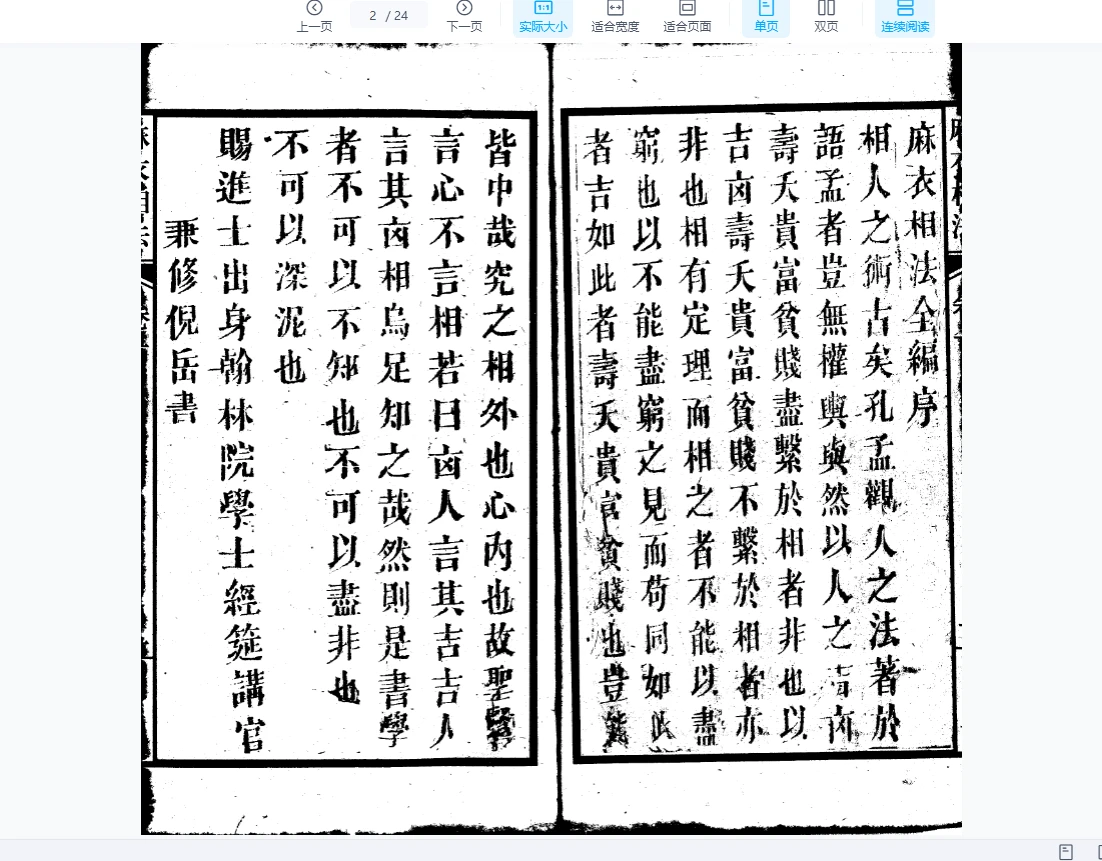 上一页
2 / 24
下一页
实际大小
适合宽度
适合页面
单页
双页
连续阅读
麻衣相法全編序
相人之術古矣孔孟觀人之法著於
語孟者豈無權輿與然以人之吉凶
壽夭貴富貧賤盡繫於相者非也以
吉凶壽夭貴富貧賤不繫於相者亦
非也相有定理而相之者不能以盡
窮也以不能盡窮之見而苟同如此
者吉如此者壽夭貴富貧賤也豈能
皆中哉究之相外也心內也故聖賢
言心不言相若曰凶人言其吉吉人
言其凶相烏足知之哉然則是書學
者不可以不知也不可以盡非也
不可以深泥也
賜進士出身翰林院學士經筵講官
兼修倪岳書